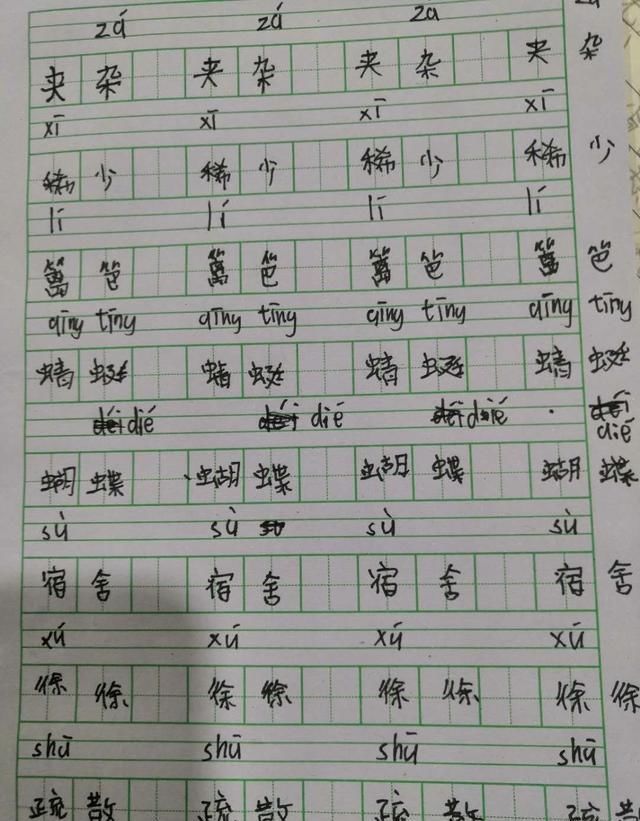 zá zá za zá
夹杂 夹杂 夹杂 夹杂
xī xī xī xī
稀少 稀少 稀少 稀少
lí lí lí lí
篱笆 篱笆 篱笆 篱笆
qīng tīng qīng tīng qīng tīng qīng tīng
蜻蜓 蜻蜓 蜻蜓 蜻蜓
dié dié dié dié
蝴蝶 蝴蝶 蝴蝶 蝴蝶
sù sù sù sù
宿舍 宿舍 宿舍 宿舍
xú xú xú xú
徐徐 徐徐 徐徐 徐徐
shū shū shū shū
疏散 疏散 疏散 疏散